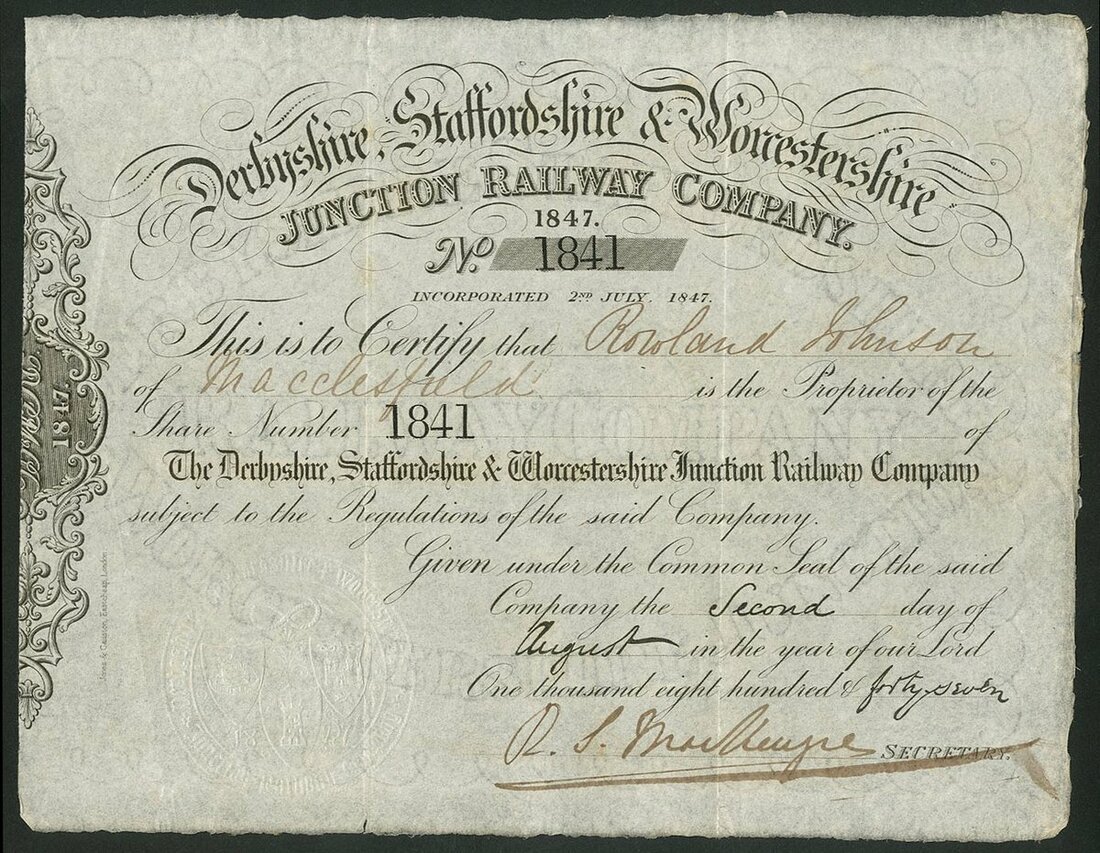 Derbyshire, Staffordshire & Worcestershire
JUNCTION RAILWAY COMPANY.
1847.
No. 1841
INCORPORATED 2ND JULY. 1847.
This is to Certify that Rowland Johnson
of Macclesfield is the Proprietor of the
Share Number 1841 of
The Derbyshire, Staffordshire & Worcestershire Junction Railway Company
subject to the Regulations of the said Company.
Given under the Common Seal of the said
Company the Second day of
August in the year of our Lord
One thousand eight hundred & forty seven
R. S. MacKenzie SECRETARY.
1847.